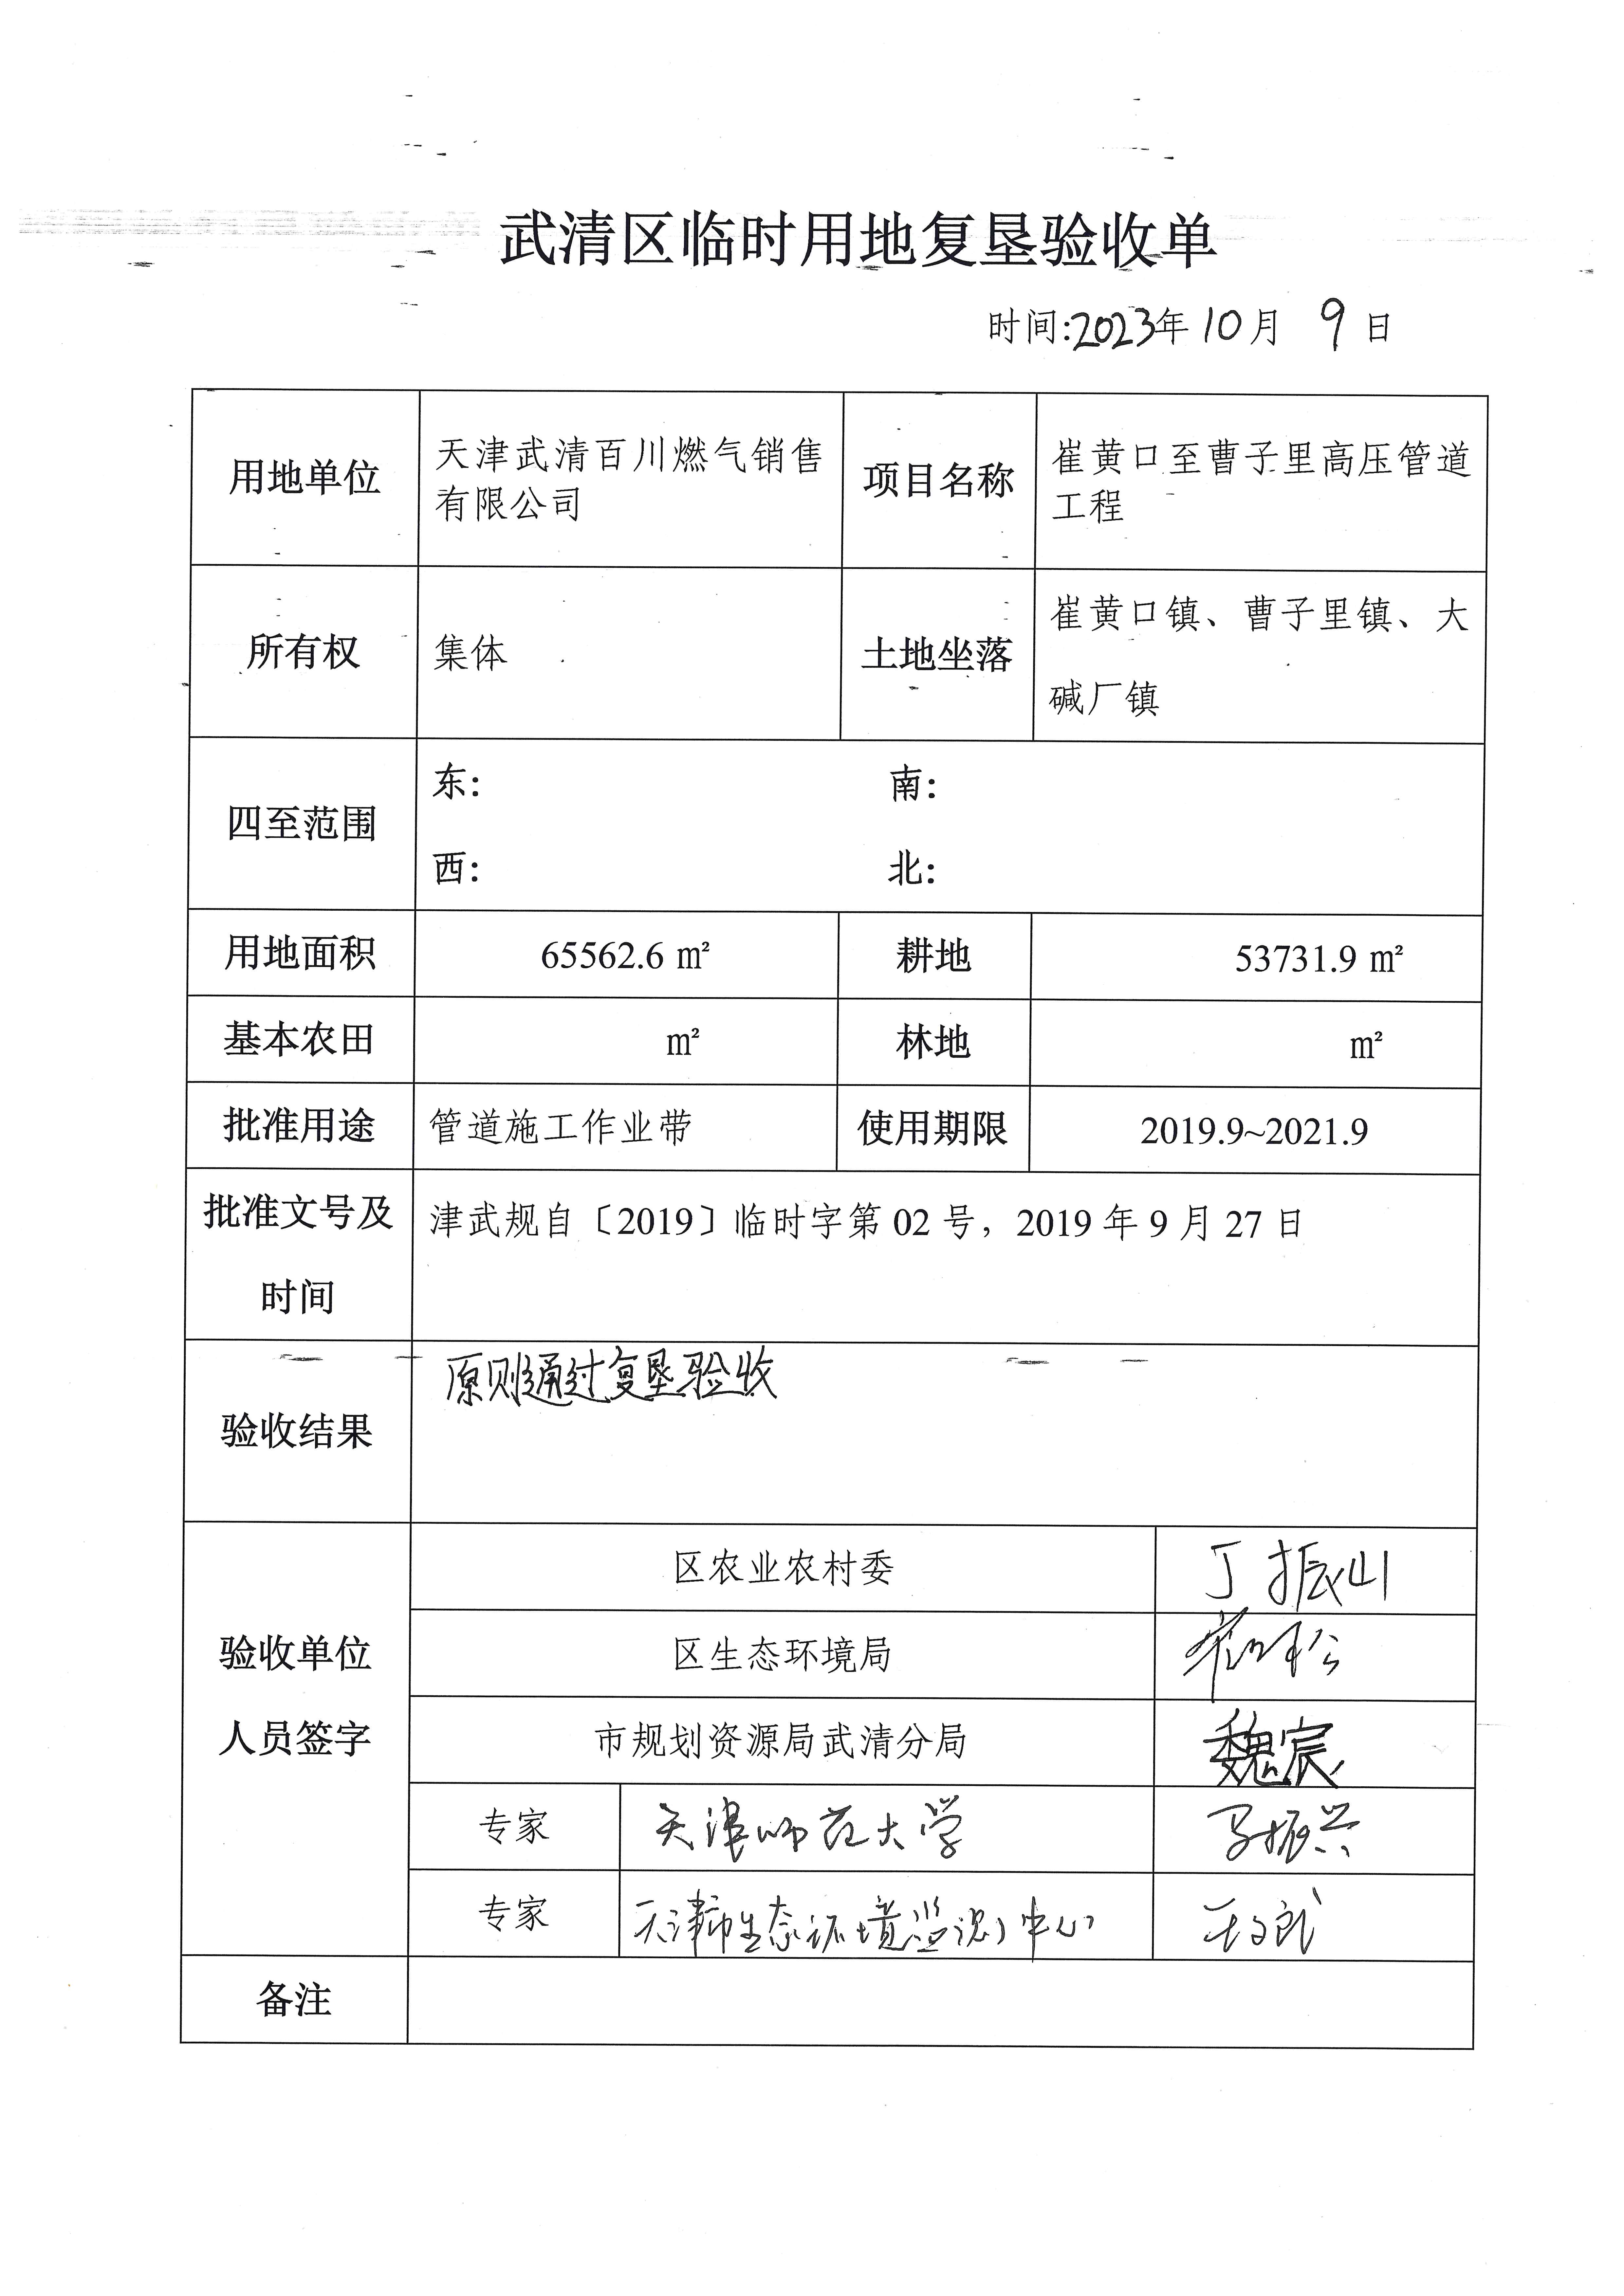 武清区临时用地复垦验收单
时间:2023年10月 9日
用地单位
天津武清百川燃气销售
有限公司
项目名称
崔黄口至曹子里高压管道
工程
所有权
集体
土地坐落
崔黄口镇、曹子里镇、大
碱厂镇
四至范围
东： 南：
西： 北：
用地面积 65562.6 ㎡ 耕地 53731.9 ㎡
基本农田 ㎡ 林地 ㎡
批准用途 管道施工作业带 使用期限 2019.9~2021.9
批准文号及
时间
津武规自〔2019〕临时字第 02 号，2019 年 9 月 27 日
验收结果
原则通过复垦验收
验收单位
人员签字
区农业农村委 丁振山
区生态环境局
市规划资源局武清分局 魏宸
专家 天津师范大学 马振兴
专家 天津市生态环境监测中心
备注